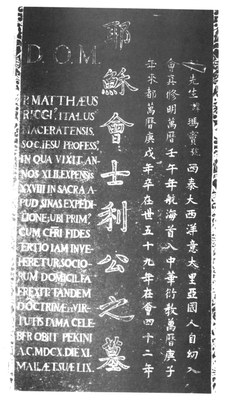 D.O.M.
P. MATTHÆUS
RICCI, ITALUS
MACERATENSIS,
SOC. IESU PROFESS',
IN QUA VIXIT AN-
NOS XLII. EXPENSIS
XXVIII IN SACRA A-
PUD SINAS EXPEDI-
TIONE; UBI PRIM',
CUM CHRI FIDES
TERTIO IAM INVE-
HERETUR, SOCIO-
RUM DOMICILIA
EREXIT. TANDEM
DOCTRINÆ & VIR-
TUTIS FAMA CELE-
BER OBIIT PEKINI
A.C. MDCX. DIE XI.
MAII. ÆT. SUÆ LIX.
耶穌會士利公之墓
先生諱瑪竇號西泰大西洋意大里亞國人自幼入
會真修明萬曆壬午年航海首入中華衍教萬曆庚子
年來都萬曆庚戌年卒在世五十九年在會四十二年